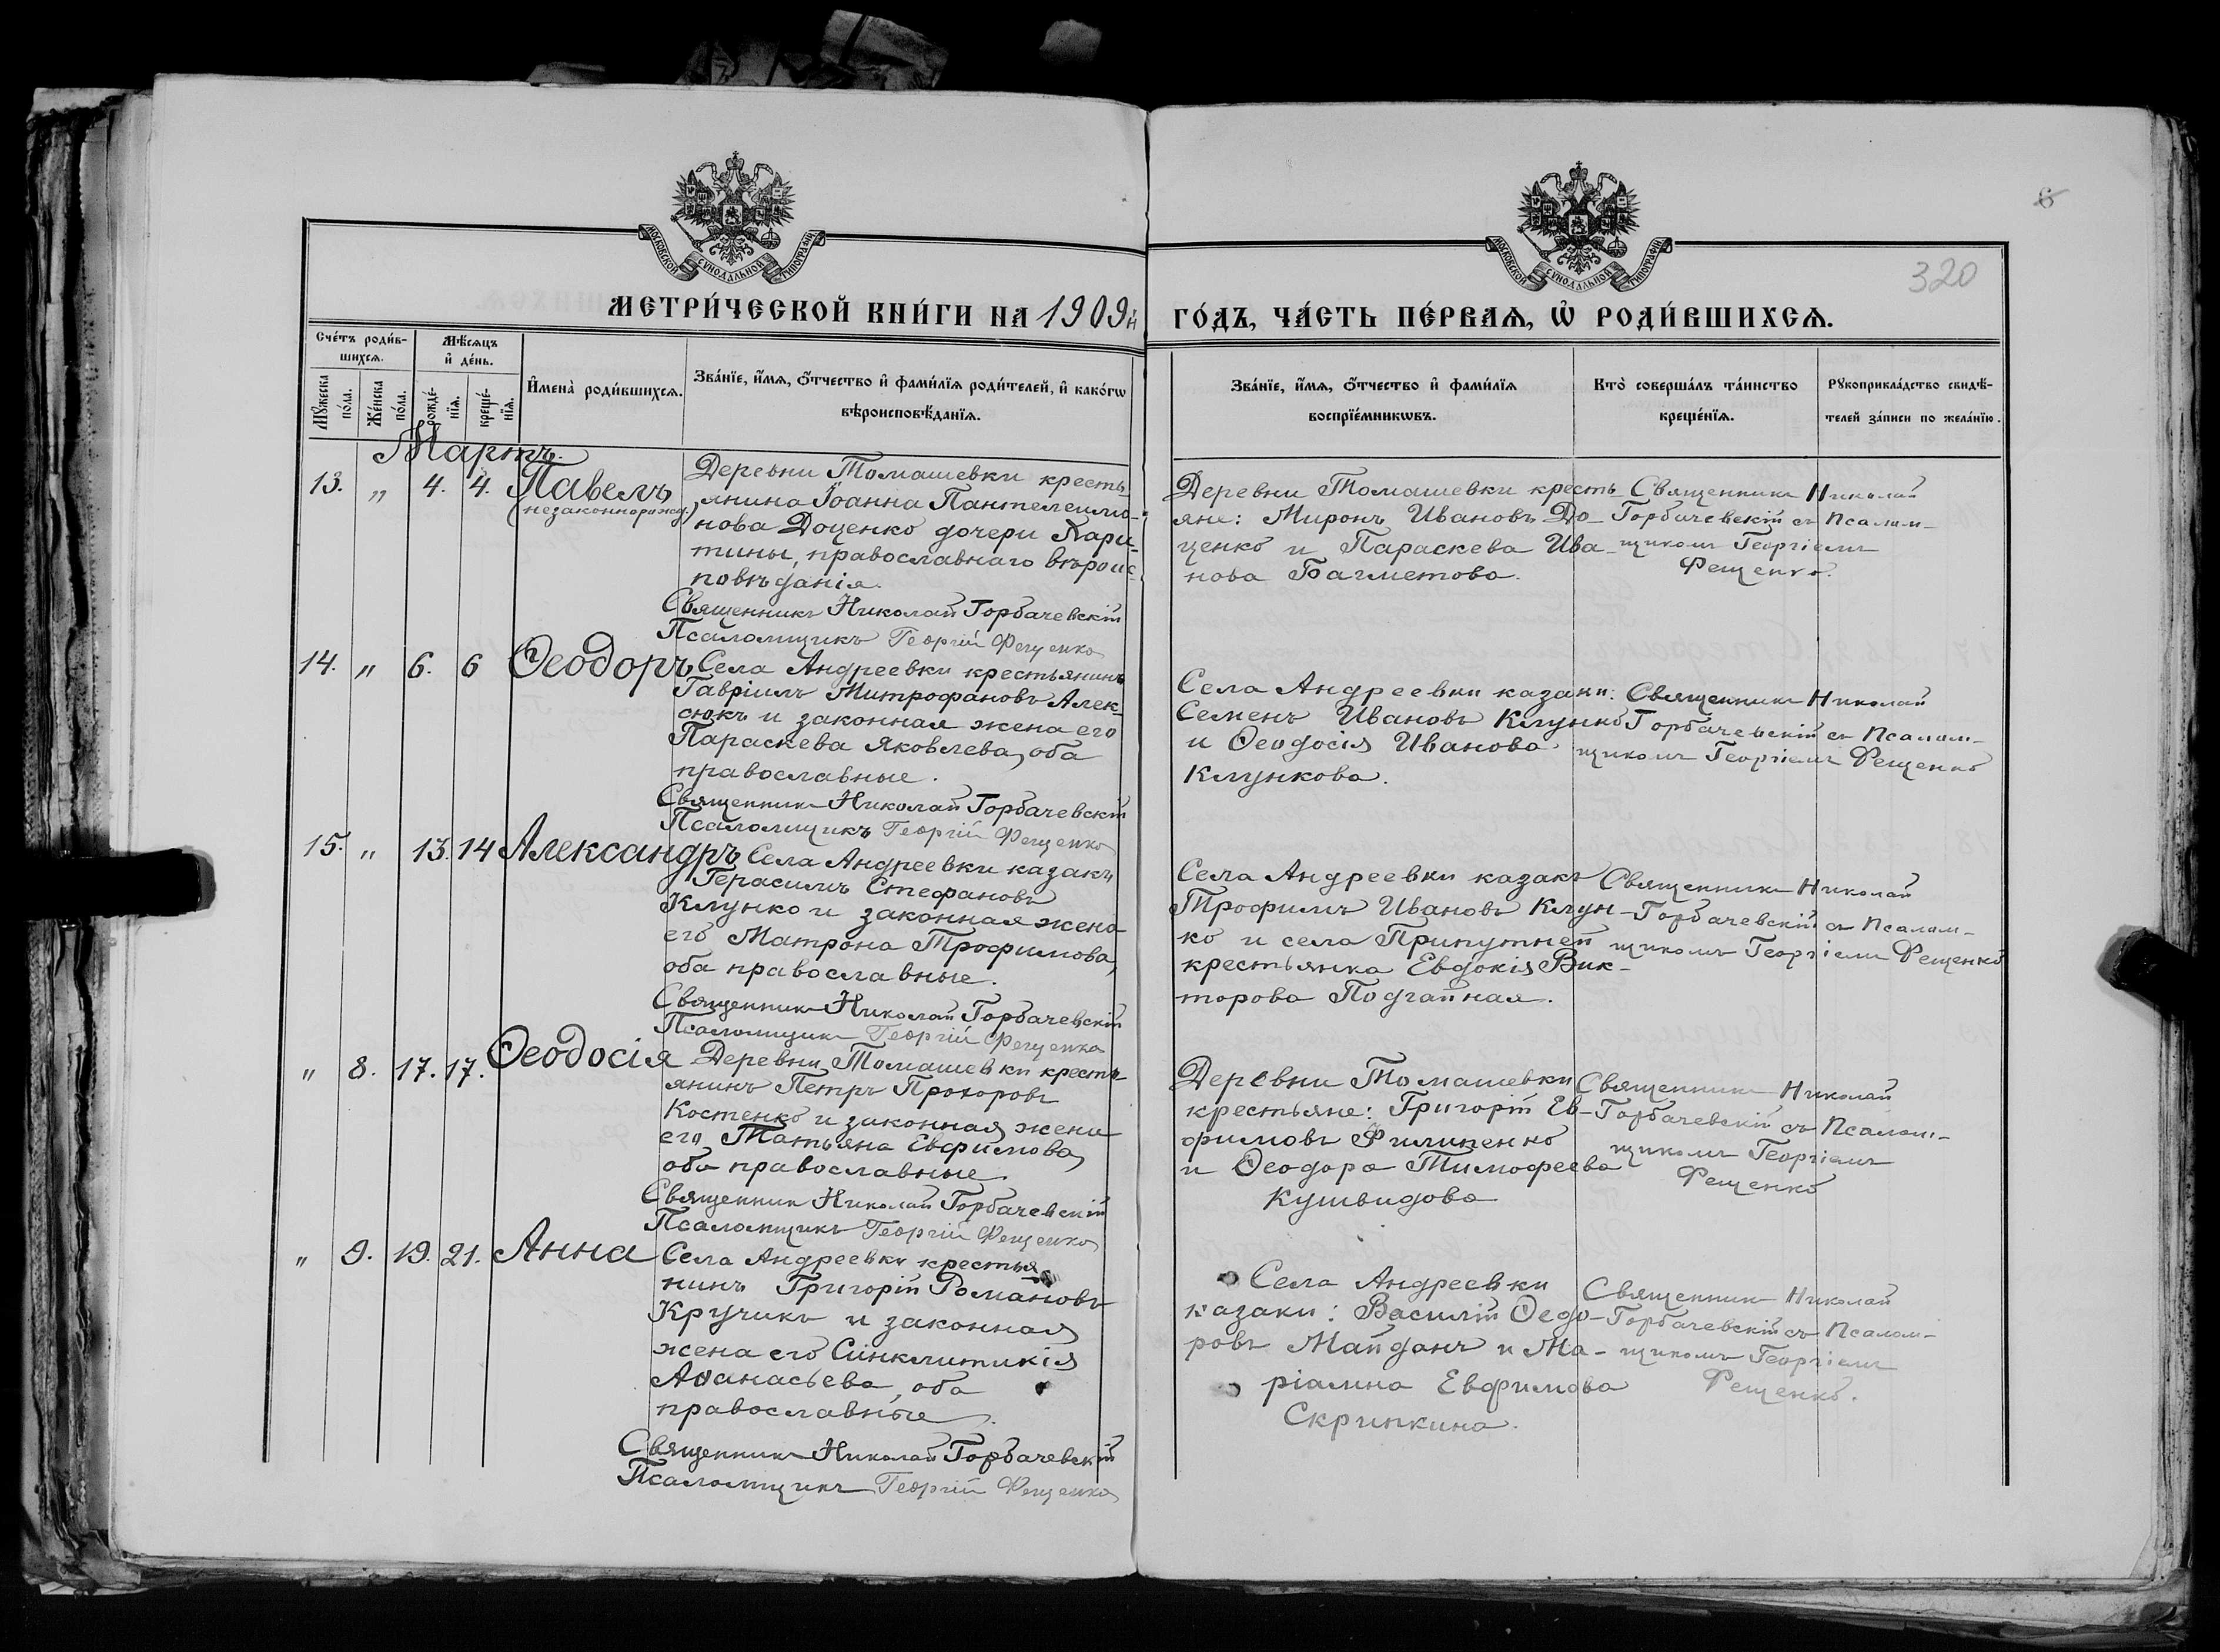 6
320
МОСКОВСКОЙ СУНОДАЛЬНОЙ ТИПОГРАФІИ
МОСКОВСКОЙ СУНОДАЛЬНОЙ ТИПОГРАФІИ
МЕТРИ́ЧЕСКОЙ КНИ́ГИ НА 1909й ГО́ДЪ, ЧА́СТЬ ПЕ́РВАѦ, Ѡ҆ РОДИ́ВШИХСѦ.
Сче́тъ роди́в-
шихсѧ.
Мꙋ́жеска по́ла.
Же́нска по́ла.
Мѣ́сѧцъ
и҆ де́нь.
рожде́-
нїѧ.
креще́-
нїѧ.
И҆мена̀ роди́вшихсѧ.
Зва́нїе, и҆́мѧ, ѻ҆́тчество и҆ фами́лїѧ роди́телей, и҆ како́гѡ
вѣроисповѣ́данїѧ.
Зва́нїе, и҆́мѧ, ѻ҆́тчество и҆ фами́лїѧ
воспрїе́мникѡвъ.
Кто̀ соверша́лъ та́инство
креще́нїѧ.
Рꙋкоприкла́дство свидѣ́-
телей за́писи по жела́нїю.
Мартъ.
13. „ 4. 4. Павелъ
(незаконнорожд.)
Деревни Томашевки кресть-
янина Іоанна Пантелеимо-
нова Доценко дочери Хари-
тины, православнаго вѣроис-
повѣданія.
Священникъ Николай Горбачевскій
Псаломщикъ Георгій Фещенко
Деревни Томашевки кресть-
яне: Миронъ Ивановъ До-
ценко и Параскева Ива-
нова Багметова.
Священникъ Николай
Горбачевскій съ Псалом-
щикомъ Георгіемъ
Фещенко.
14. „ 6. 6 Ѳеодоръ
Села Андреевки крестьянинъ
Гавріилъ Митрофановъ Алек-
сюкъ и законная жена его
Параскева Яковлева, оба
православные.
Священникъ Николай Горбачевскій
Псаломщикъ Георгій Фещенко
Села Андреевки казаки:
Семенъ Ивановъ Клунко
и Ѳеодосія Иванова
Клункова.
Священникъ Николай
Горбачевскій съ Псалом-
щикомъ Георгіемъ Фещенко
15. „ 13. 14 Александръ
Села Андреевки казакъ
Герасимъ Стефановъ
Клунко и законная жена
его Матрона Трофимова,
оба православные.
Священникъ Николай Горбачевскій
Псаломщикъ Георгій Фещенко
Села Андреевки казакъ
Трофимъ Ивановъ Клун-
ко и села Припутней
крестьянка Евдокія Вик-
торова Подгайная.
Священникъ Николай
Горбачевскій съ Псалом-
щикомъ Георгіемъ Фещенко
„ 8. 17. 17. Ѳеодосія
Деревни Томашевки кресть-
янинъ Петръ Прохоровъ
Костенко и законная жена
его Татьяна Евфимова,
оба православные.
Священникъ Николай Горбачевскій
Псаломщикъ Георгій Фещенко
Деревни Томашевки
крестьяне: Григорій Ев-
фимовъ Филипенко
и Ѳеодора Тимофеева
Кушвидова
Священникъ Николай
Горбачевскій съ Псалом-
щикомъ Георгіемъ
Фещенко
„ 9. 19. 21. Анна
Села Андреевки крестья-
нинъ Григорій Романовъ
Кручикъ и законная
жена его Синклитикія
Аѳанасьева, оба
православные.
Священникъ Николай Горбачевскій
Псаломщикъ Георгій Фещенко
Села Андреевки
казаки: Василій Ѳедо-
ровъ Майданъ и Ма-
ріамна Евфимова
Скрипкина.
Священникъ Николай
Горбачевскій съ Псалом-
щикомъ Георгіемъ
Фещенко.